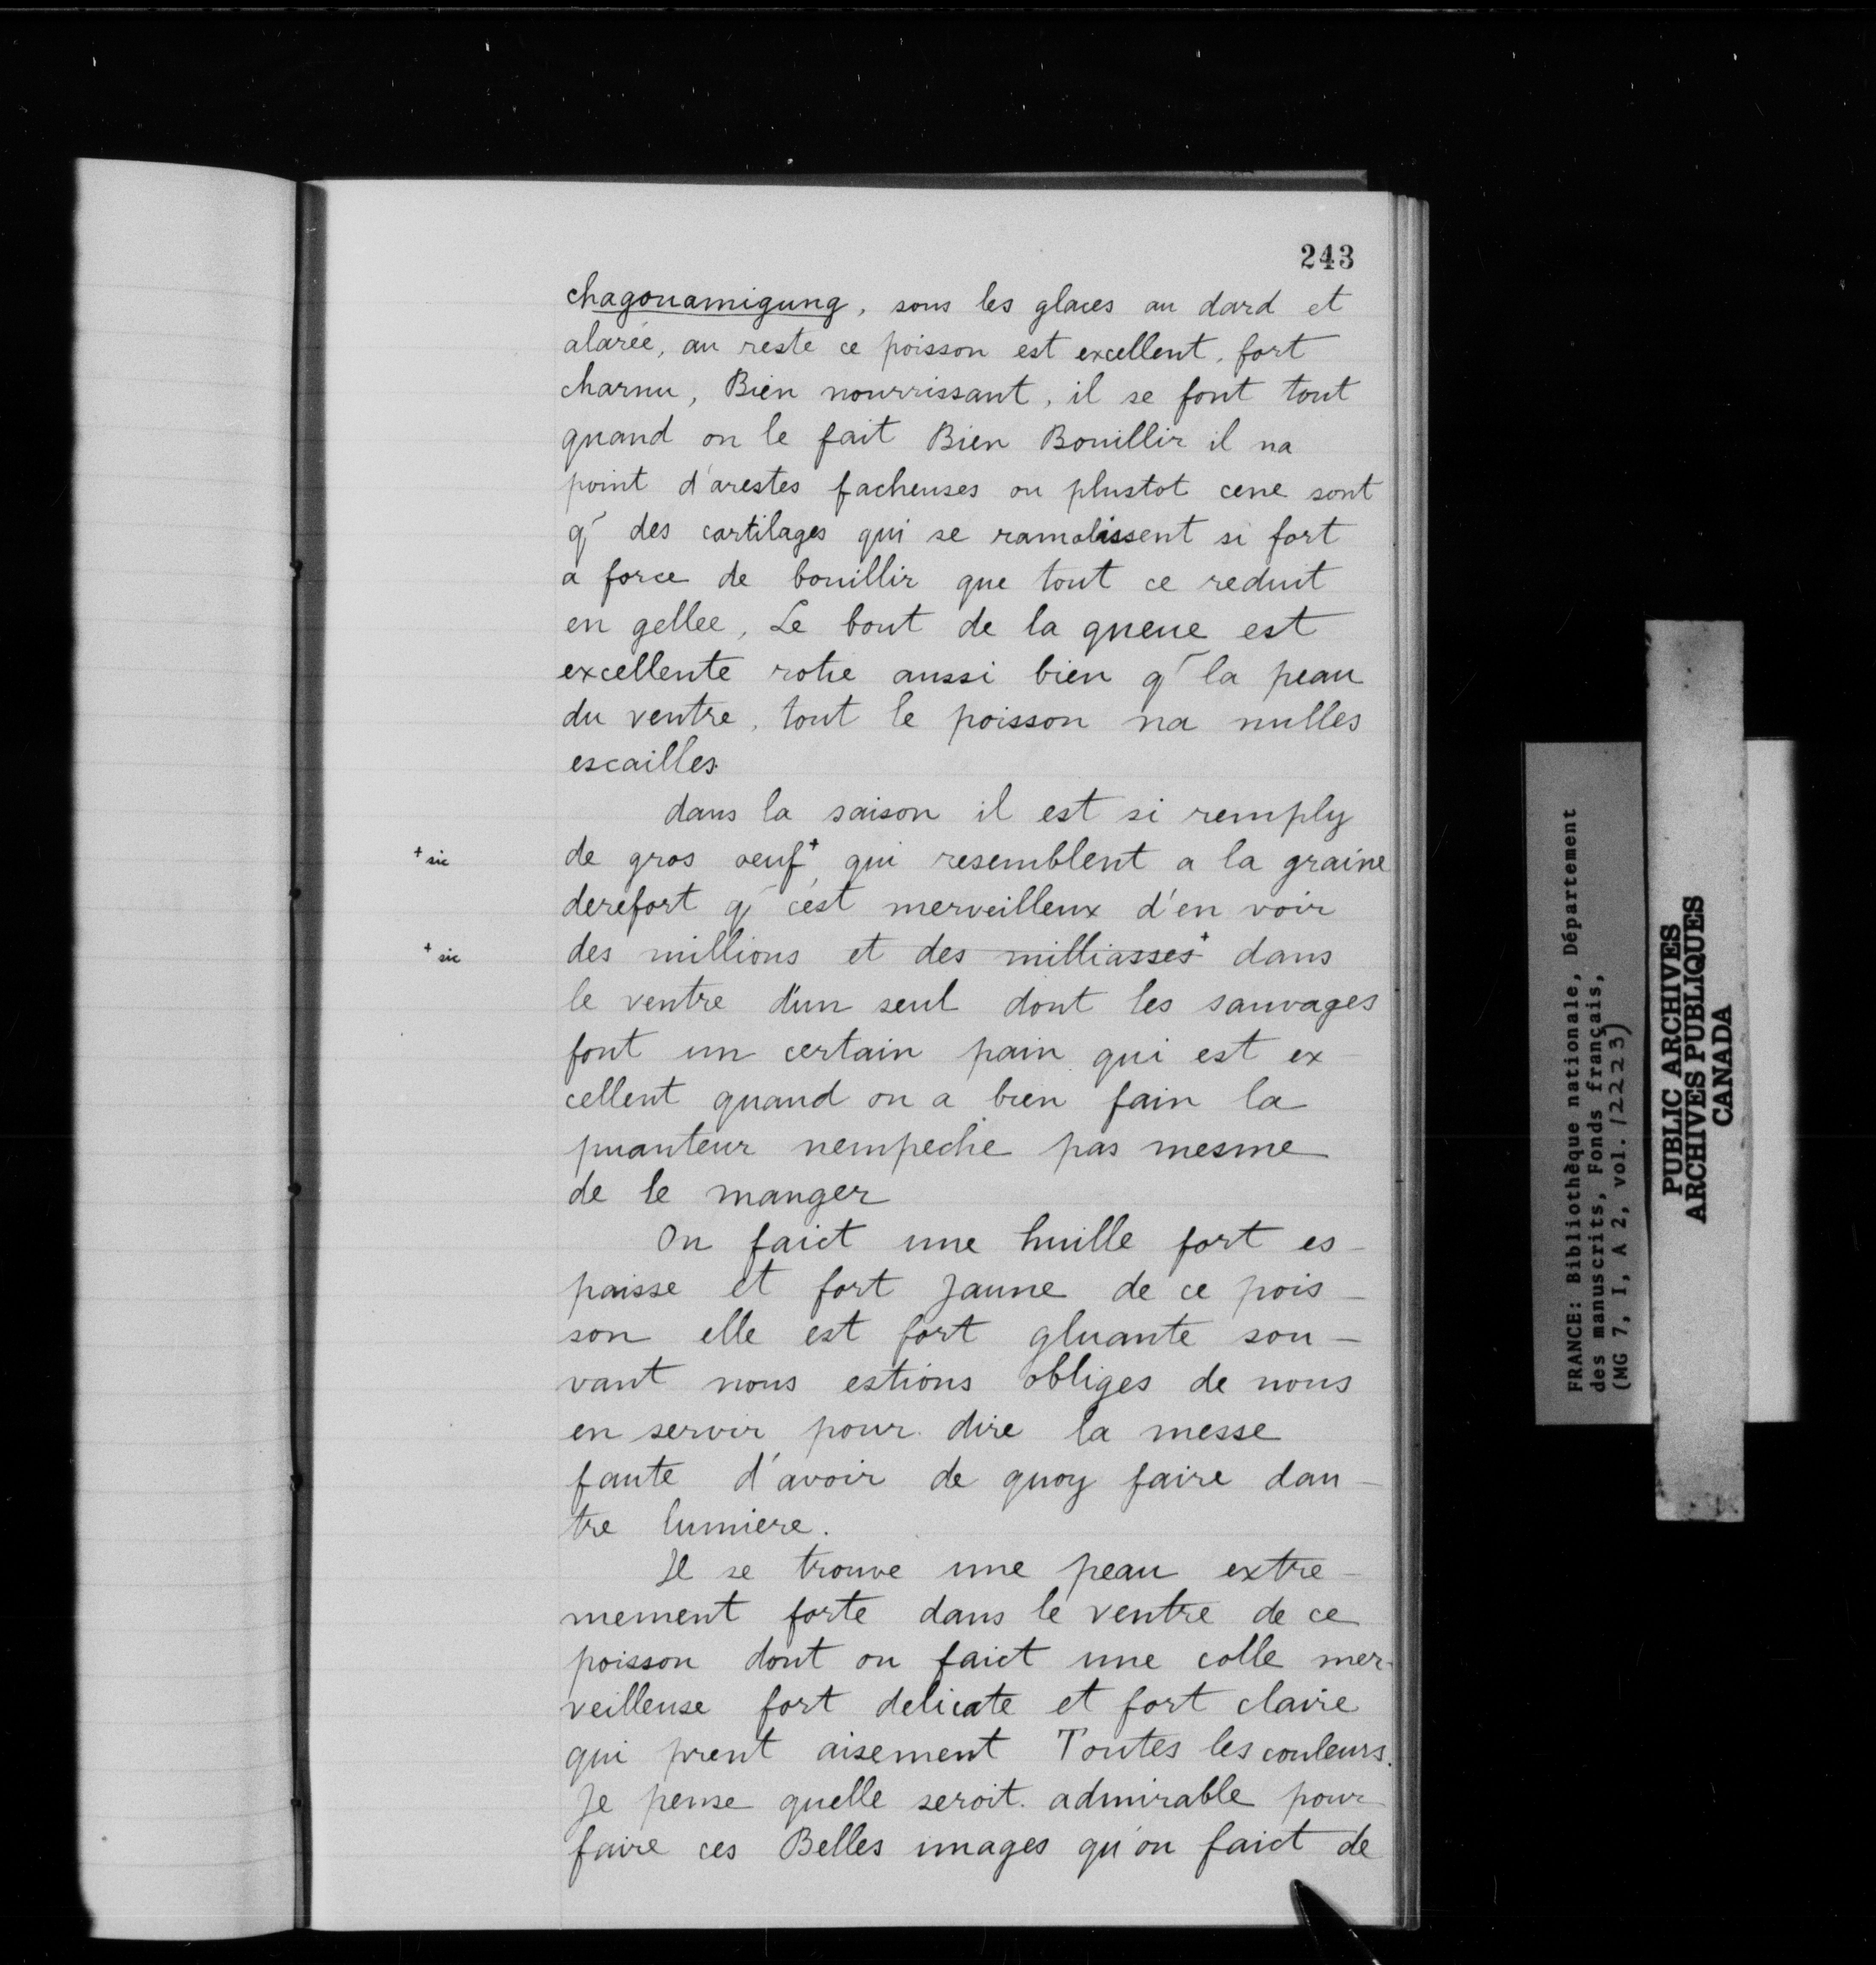 243
chagouamigung, sous les glaces au dard et
alarée, au reste ce poisson est excellent, fort
charnu, Bien nourrissant, il se font tout
quand on le fait Bien Bouillir il na
point d'arestes facheuses ou plustot cene sont
q̃ des cartilages qui se ramolissent si fort
a force de bouillir que tout ce reduit
en gellee, Le bout de la queue est
excellente rotie aussi bien q̃ la peau
du ventre, tout le poisson na nulles
escailles.
dans la saison il est si remply
+ sic de gros oeuf+, qui resemblent a la graine
derefort q̃ c'est merveilleux d'en voir
+ sic des millions et des milliasses+ dans
le ventre d'un seul dont les sauvages
font un certain pain qui est ex-
cellent quand on a bien fain la
puanteur nempeche pas mesme
de le manger
On faict une huille fort es-
paisse et fort Jaune de ce pois-
son elle est fort gluante sou-
vant nous estions obliges de nous
en servir pour dire la messe
faute d'avoir de quoy faire dau-
tre lumiere.
Il se trouve une peau extre-
mement forte dans le ventre de ce
poisson dont on faict une colle mer-
veilleuse fort delicate et fort claire
qui prent aisement Toutes les couleurs.
Je pense quelle seroit admirable pour
faire ces Belles images qu'on faict de
FRANCE: Bibliothèque nationale, Département
des manuscrits, Fonds français,
(MG 7, I, A 2, vol. 12223)
PUBLIC ARCHIVES
ARCHIVES PUBLIQUES
CANADA